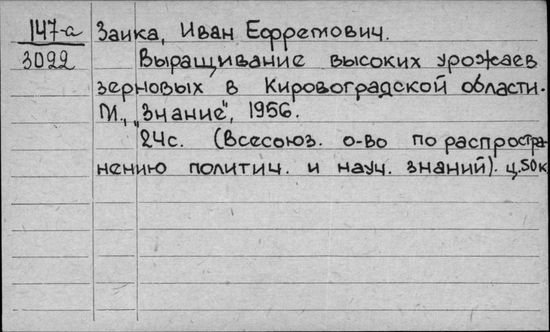 147-а Заика, Иван Ефремович.
3022 Выращивание высоких урожаев
зерновых в Кировоградской области.
М., „Знание", 1956.
24с. (Всесоюз. о-во по распростра-
нению политич. и науч. знаний). ц.50к